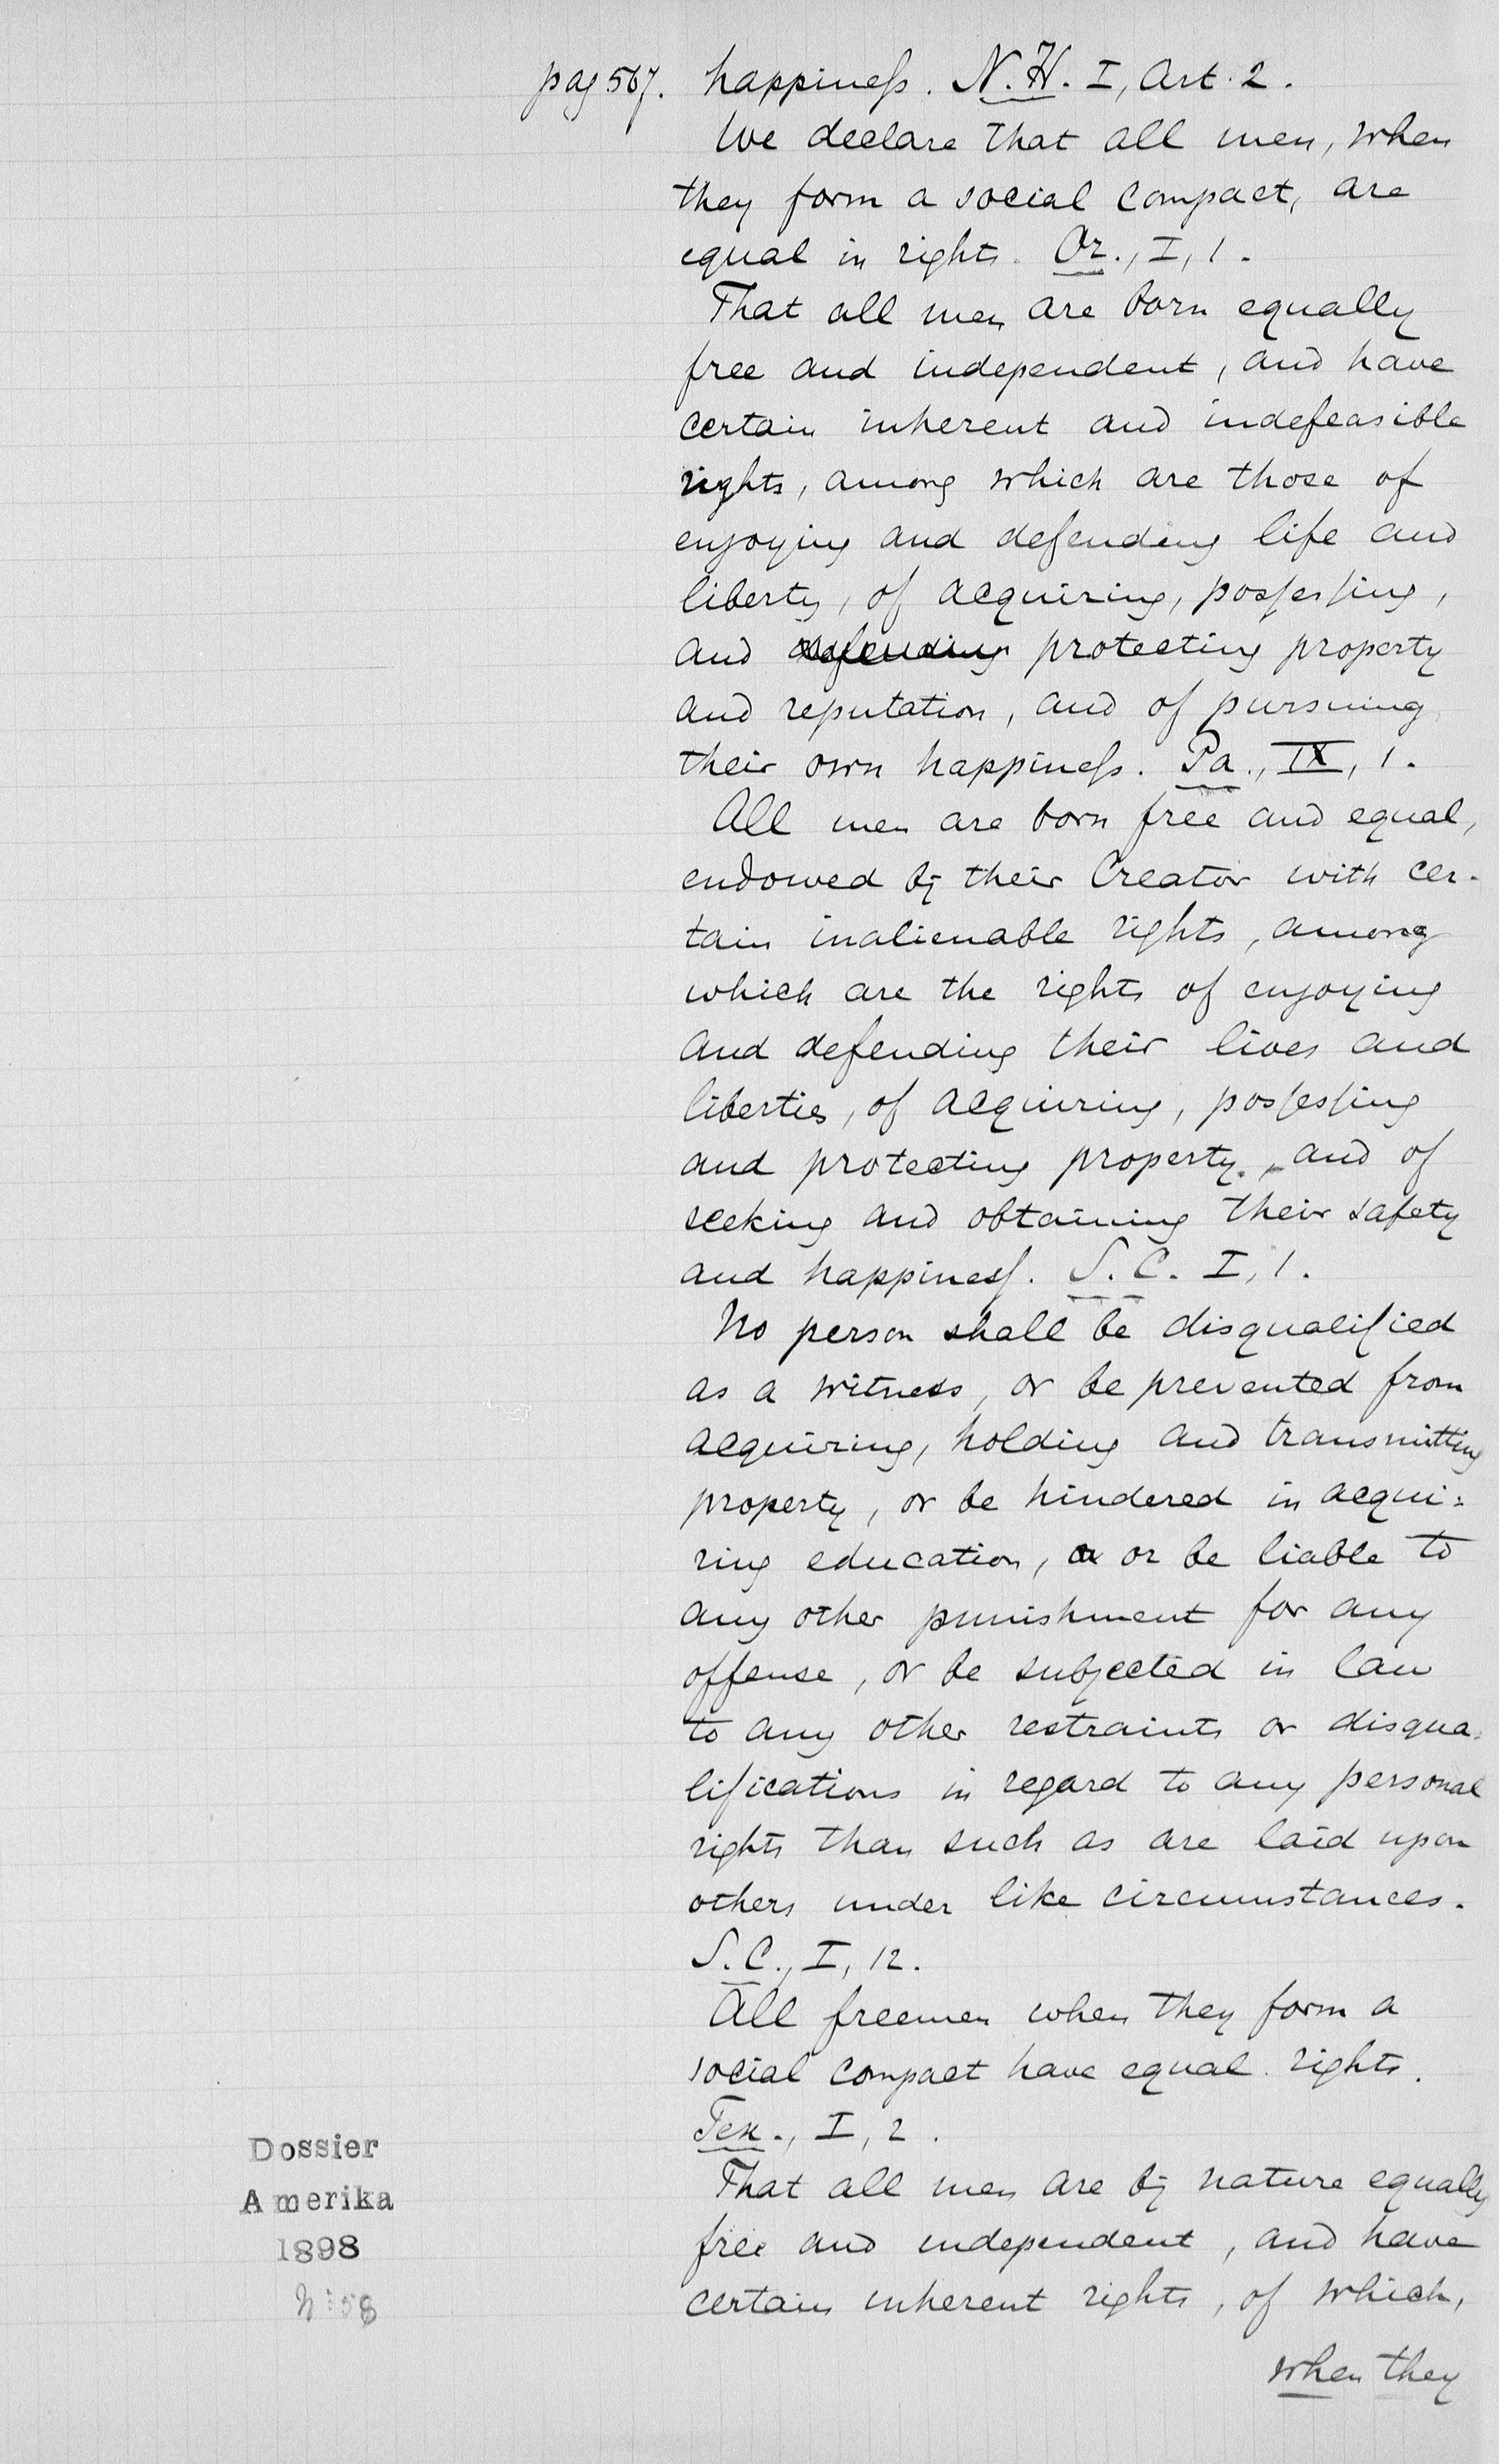 pag 567. happiness. N.H. I, Art. 2.
We declare that all men, when
they form a social compact, are
equal in right. Or., I, 1.
That all men are born equally
free and independent, and have
certain inherent and indefeasible
rights, among which are those of
enjoying and defending life and
liberty, of acquiring, possessing,
and defending protecting property
and reputation, and of pursuing
their own happiness. Pa., IX, 1.
All men are born free and equal,
endowed by their Creator with cer-
tain inalienable rights, among
which are the rights of enjoying
and defending their lives and
liberties, of acquiring, possessing
and protecting property, and of
seeking and obtaining their safety
and happiness. S.C. I, 1.
No person shall be disqualified
as a witness, or be prevented from
acquiring, holding and transmitting
property, or be hindered in acqui-
ring education, or be liable to
any other punishment for any
offense, or be subjected in law
to any other restraints or disqua-
lifications in regard to any personal
rights than such as are laid upon
others under like circumstances.
S.C., I, 12.
All freemen when they form a
social compact have equal rights.
Tex., I, 2.
That all men are by nature equally
free and independent, and have
certain inherent rights, of which,
when they
Dossier
Amerika
1898